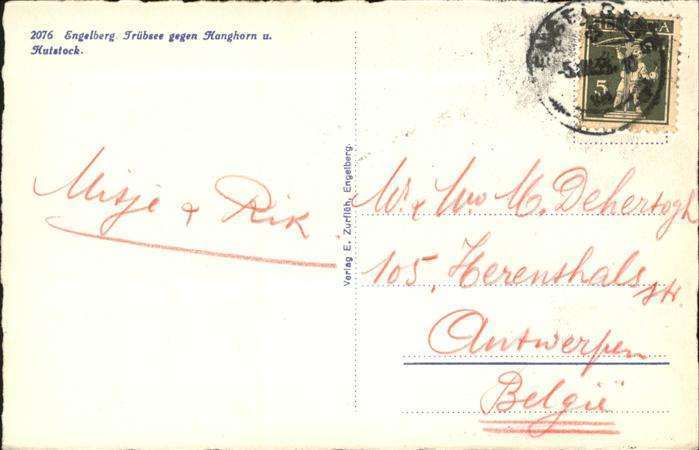 2076 Engelberg. Trübsee gegen Hanghorn u.
Hutstock.
Mitje & Rik
Verlag E. Zurflüh, Engelberg.
HELVETIA
5
M. & Mw M. Dehertogh
105, Herenthals
str.
Antwerpen
België